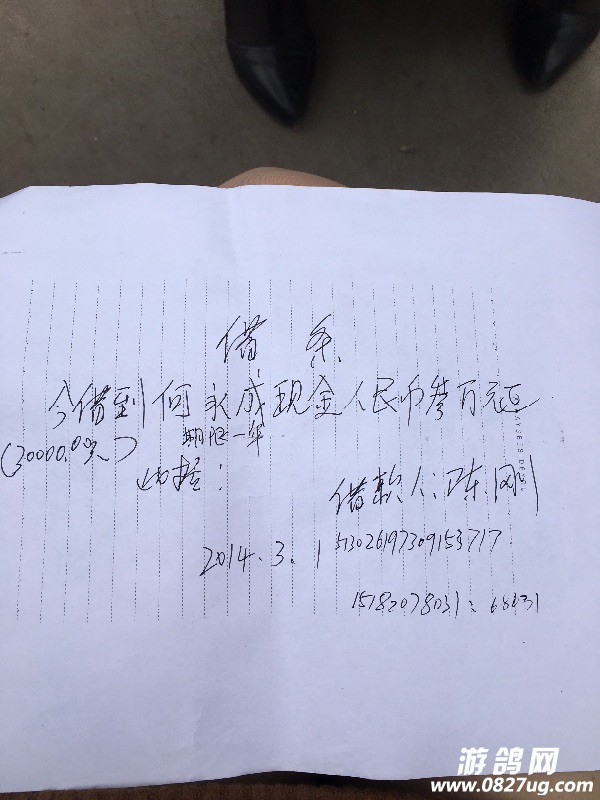 借条
今借到何永成现金人民币叁万元正
(30000.00元)
期限一年
此据:
借款人:陈刚
2014.3.1
513026197309153717
15182078031:
游鸽网
www.0827ug.com